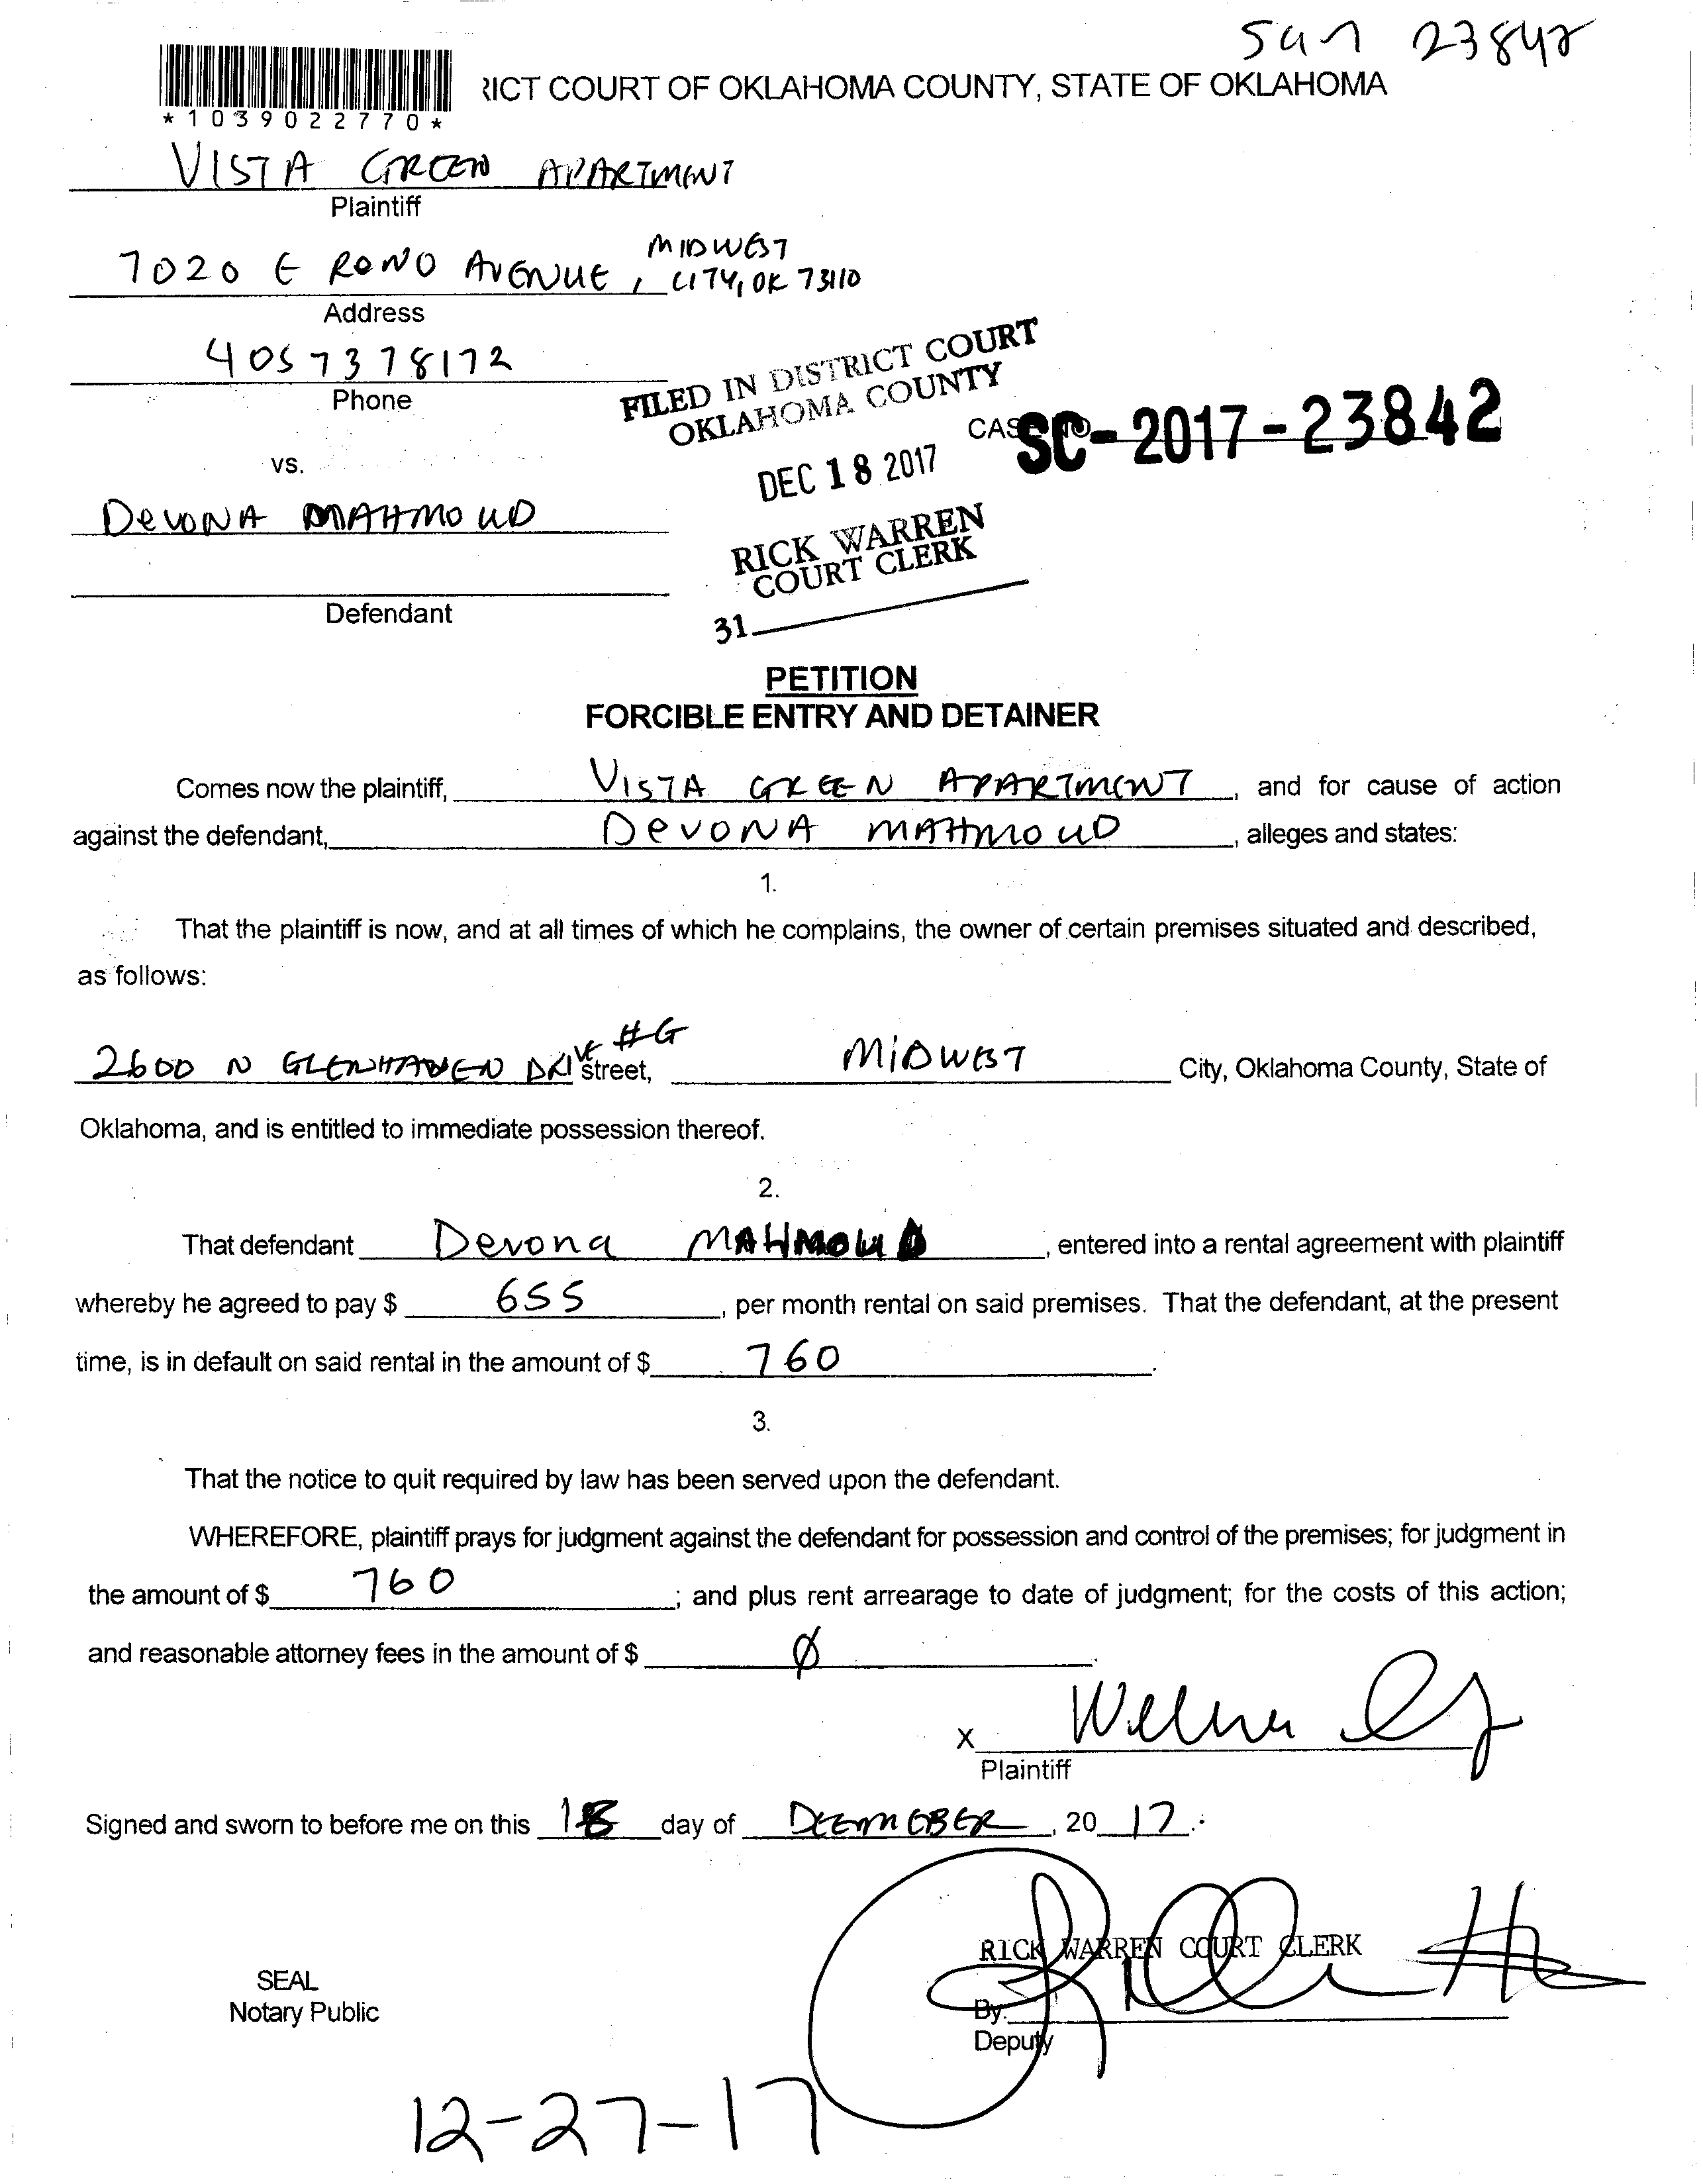 23842
RICT COURT OF OKLAHOMA COUNTY, STATE OF OKLAHOMA
*1039022770*
VISTA GREEN APARTMENT
Plaintiff
7020 E RENO AVENUE, MIDWEST
CITY, OK 73110
Address
4057378172
Phone
FILED IN DISTRICT COURT
OKLAHOMA COUNTY
CAS NO SC-2017-23842
DEC 18 2017
vs.
DEVONA MAHMOUD
RICK WARREN
COURT CLERK
Defendant
31
PETITION
FORCIBLE ENTRY AND DETAINER
Comes now the plaintiff, VISTA GREEN APARTMENT, and for cause of action
against the defendant, DEVONA MAHMOUD, alleges and states:
1.
That the plaintiff is now, and at all times of which he complains, the owner of certain premises situated and described,
as follows:
2600 N GLENHAVEN DRIVE #G street, MIDWEST City, Oklahoma County, State of
Oklahoma, and is entitled to immediate possession thereof.
2.
That defendant Devona MAHMOUD, entered into a rental agreement with plaintiff
whereby he agreed to pay $ 655, per month rental on said premises. That the defendant, at the present
time, is in default on said rental in the amount of $ 760.
3.
That the notice to quit required by law has been served upon the defendant.
WHEREFORE, plaintiff prays for judgment against the defendant for possession and control of the premises; for judgment in
the amount of $ 760; and plus rent arrearage to date of judgment; for the costs of this action;
and reasonable attorney fees in the amount of $ Ø.
X
Plaintiff
Signed and sworn to before me on this 18 day of DEEMEBER, 2017.
RICK WARREN COURT CLERK
SEAL
Notary Public
By:
Deputy
12-27-17